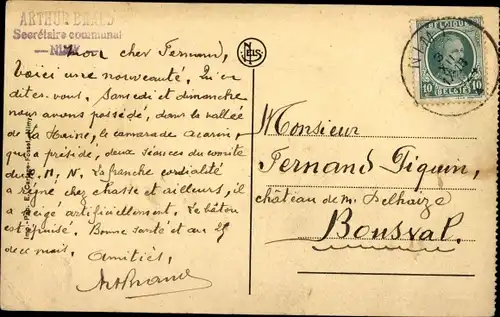 ARTHUR
Secrétaire communal
— NIMY —
Mon cher Fernand,
Voici une nouveauté. Qu'en
dites-vous. Samedi et dimanche
nous avons possédé, dans la vallée
de la Haine, le camarade
qui a présidé, deux séances du comité
du N. La franche cordialité
a régné chez Chasse et ailleurs, il
a neigé artificiellement. Le bâton
est épuisé. Bonne santé et au 25
de ce mois.
Amitiés,
NELS
NIMY
BELGIQUE
10 10
BELGIË
Monsieur
Fernand Piquin,
château de M. Delhaize
Bousval.